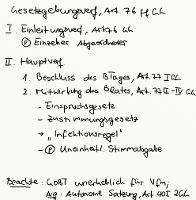 Gesetzgebungsverf, Art. 76 ff GG
I. Einleitungsverf, Art 76 GG
Ⓟ Einzelner Abgeordneter
II. Hauptverf
1. Beschluss des BTages, Art. 77 I GG
2. Mitwirkung des BRates, Art. 77 II-IV GG
- Einspruchsgesetz
- Zustimmungsgesetz
→ "Infektionsregel"
- Ⓟ Uneinheitl. Stimmabgabe
Beachte: GOBT unerheblich für Vfm;
Arg: Autonome Satzung, Art 40 I 2 GG